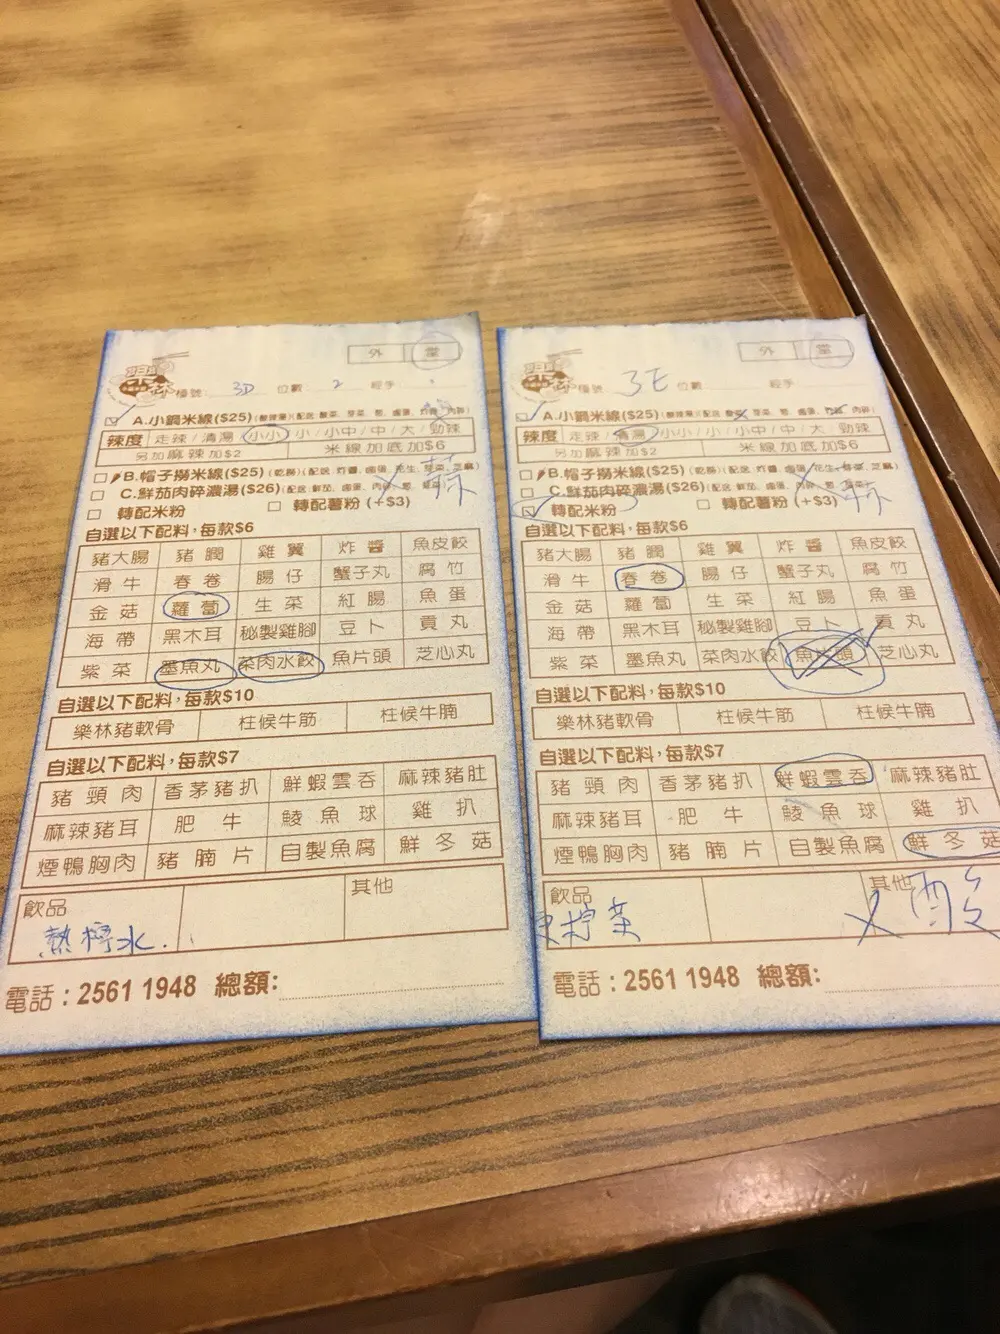 外 堂
檯號: 3D 位數: 2 經手:
A.小鍋米線($25)
辣度 走辣 / 清湯 小小 / 小 / 小中 / 中 / 大 / 勁辣
另加麻辣加$2 米線加底加$6
B.帽子撈米線($25) (乾撈) (配送 炸醬, 鹵蛋, 花生, 芽菜, 芝麻)
C.鮮茄肉碎濃湯($26)
轉配米粉 轉配薯粉 (+$3)
自選以下配料,每款$6
豬大腸 豬膶 雞翼 炸醬 魚皮餃
滑牛 春卷 腸仔 蟹子丸 腐竹
金菇 蘿蔔 生菜 紅腸 魚蛋
海帶 黑木耳 秘製雞腳 豆卜 貢丸
紫菜 墨魚丸 菜肉水餃 魚片頭 芝心丸
自選以下配料,每款$10
樂林豬軟骨 柱候牛筋 柱候牛腩
自選以下配料,每款$7
豬頸肉 香茅豬扒 鮮蝦雲吞 麻辣豬肚
麻辣豬耳 肥牛 鯪魚球 雞扒
煙鴨胸肉 豬腩片 自製魚腐 鮮冬菇
飲品 其他
熱檸水.
電話 : 2561 1948 總額:
外 堂
檯號: 3E 位數 經手
A.小鍋米線($25)
辣度 走辣 / 清湯 小小 / 小 / 小中 / 中 / 大 / 勁辣
另加麻辣加$2 米線加底加$6
B.帽子撈米線($25) (乾撈) (配送 炸醬, 鹵蛋, 花生, 芽菜, 芝麻)
C.鮮茄肉碎濃湯($26)
轉配米粉 轉配薯粉 (+$3)
自選以下配料,每款$6
豬大腸 豬膶 雞翼 炸醬 魚皮餃
滑牛 春卷 腸仔 蟹子丸 腐竹
金菇 蘿蔔 生菜 紅腸 魚蛋
海帶 黑木耳 秘製雞腳 豆卜 貢丸
紫菜 墨魚丸 菜肉水餃 魚片頭 芝心丸
自選以下配料,每款$10
樂林豬軟骨 柱候牛筋 柱候牛腩
自選以下配料,每款$7
豬頸肉 香茅豬扒 鮮蝦雲吞 麻辣豬肚
麻辣豬耳 肥牛 鯪魚球 雞扒
煙鴨胸肉 豬腩片 自製魚腐 鮮冬菇
飲品 其他
柠茶 X 酸
電話 : 2561 1948 總額: